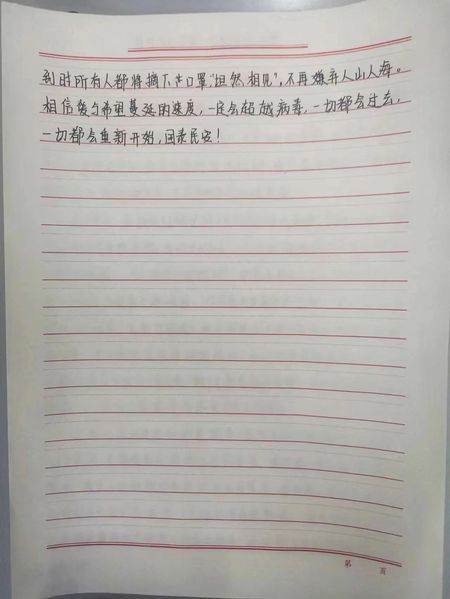 到时所有人都将摘下口罩,"坦然相见",不再嫌弃人山人海。
相信爱与希望蔓延的速度,一定会超越病毒,一切都会过去,
一切都会重新开始,国泰民安!
第 页